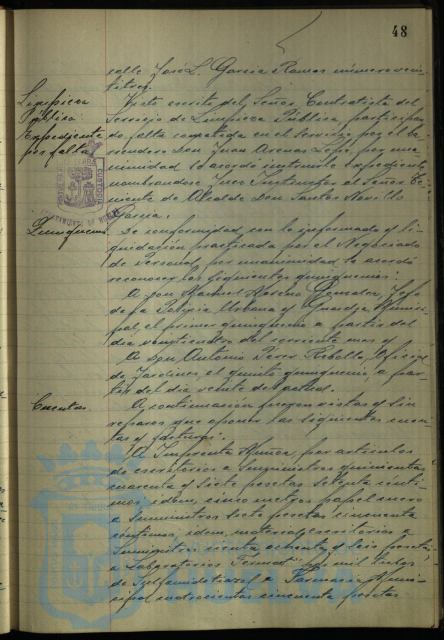 48
calle José L. Garcia Ramos número vein
titres.
Limpieza
Pública.
Expediente
por falta
Visto escrito del Señor Contratista del
Servicio de Limpieza Pública, participan
do falta cometida en el servicio por el ba
rrendero Don Juan Arenas, por una
nimidad se acordó instruirle expediente,
nombrandose Juez Instructor al Señor Te
niente de Alcalde Don Santos
Garcia.
Quinquenios.
De conformidad con lo informado y li
quidación practicada por el Negociado
de Personal, por unanimidad se acordó
reconocer los siguientes quinquenios:
A Don Manuel Moreno Gonzalez, Jefe
de la Policia Urbana y Guardia Munici
pal, el primer quinquenio a partir del
dia del corriente mes y
A Don Antonio Perez Rebollo, Oficial
de Jardines el quinto quinquenio, a par
tir del dia veinte del actual.
Cuentas.
A continuación fueron vistas y sin
reparos que oponer las siguientes cuen
tas y facturas:
A Imprenta Muñoz, por articulos
de escritorios a Suministros quinientas
cuarenta y siete pesetas setenta centi
mos, idem, cinco metros papel
a Suministros siete pesetas cincuenta
centimos, idem, material escritorios a
Suministros ciento ochenta y seis pesetas
a Laboratorios por mil
de a Farmacia Muni
cipal cuatrocientas cincuenta pesetas